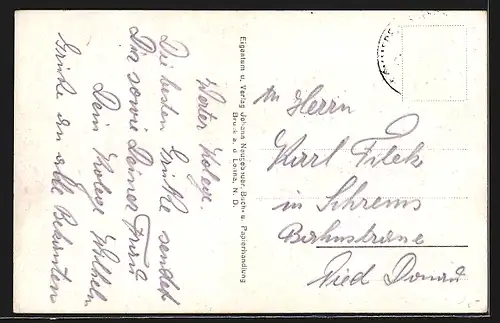 Werter Kolege.
Die besten Grüße sendet
Dir sowie Deiner Frau
Dein Kolege Wilhelm
Grüße an alle Bekannten
Eigentum u. Verlag Johann Neugebauer, Buch- u. Papierhandlung
Bruck a. d. Leitha, N. D.
An Herrn
Karl Filek
in Schrems
Bahnstrane
Nied Donau